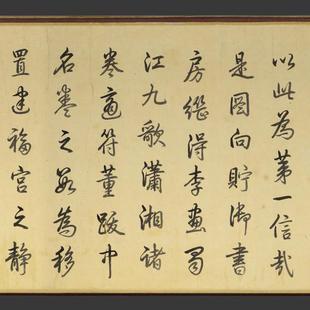 以此為第一信哉
是圖向貯御書
房繼得李畫蜀
江九歌瀟湘諸
卷適符董跋中
名卷之數為移
置建福宮之靜